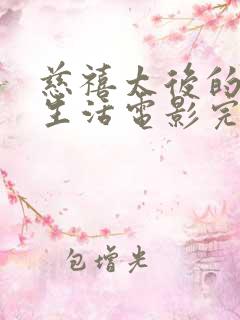 慈禧太后的
生活电影完
包增光